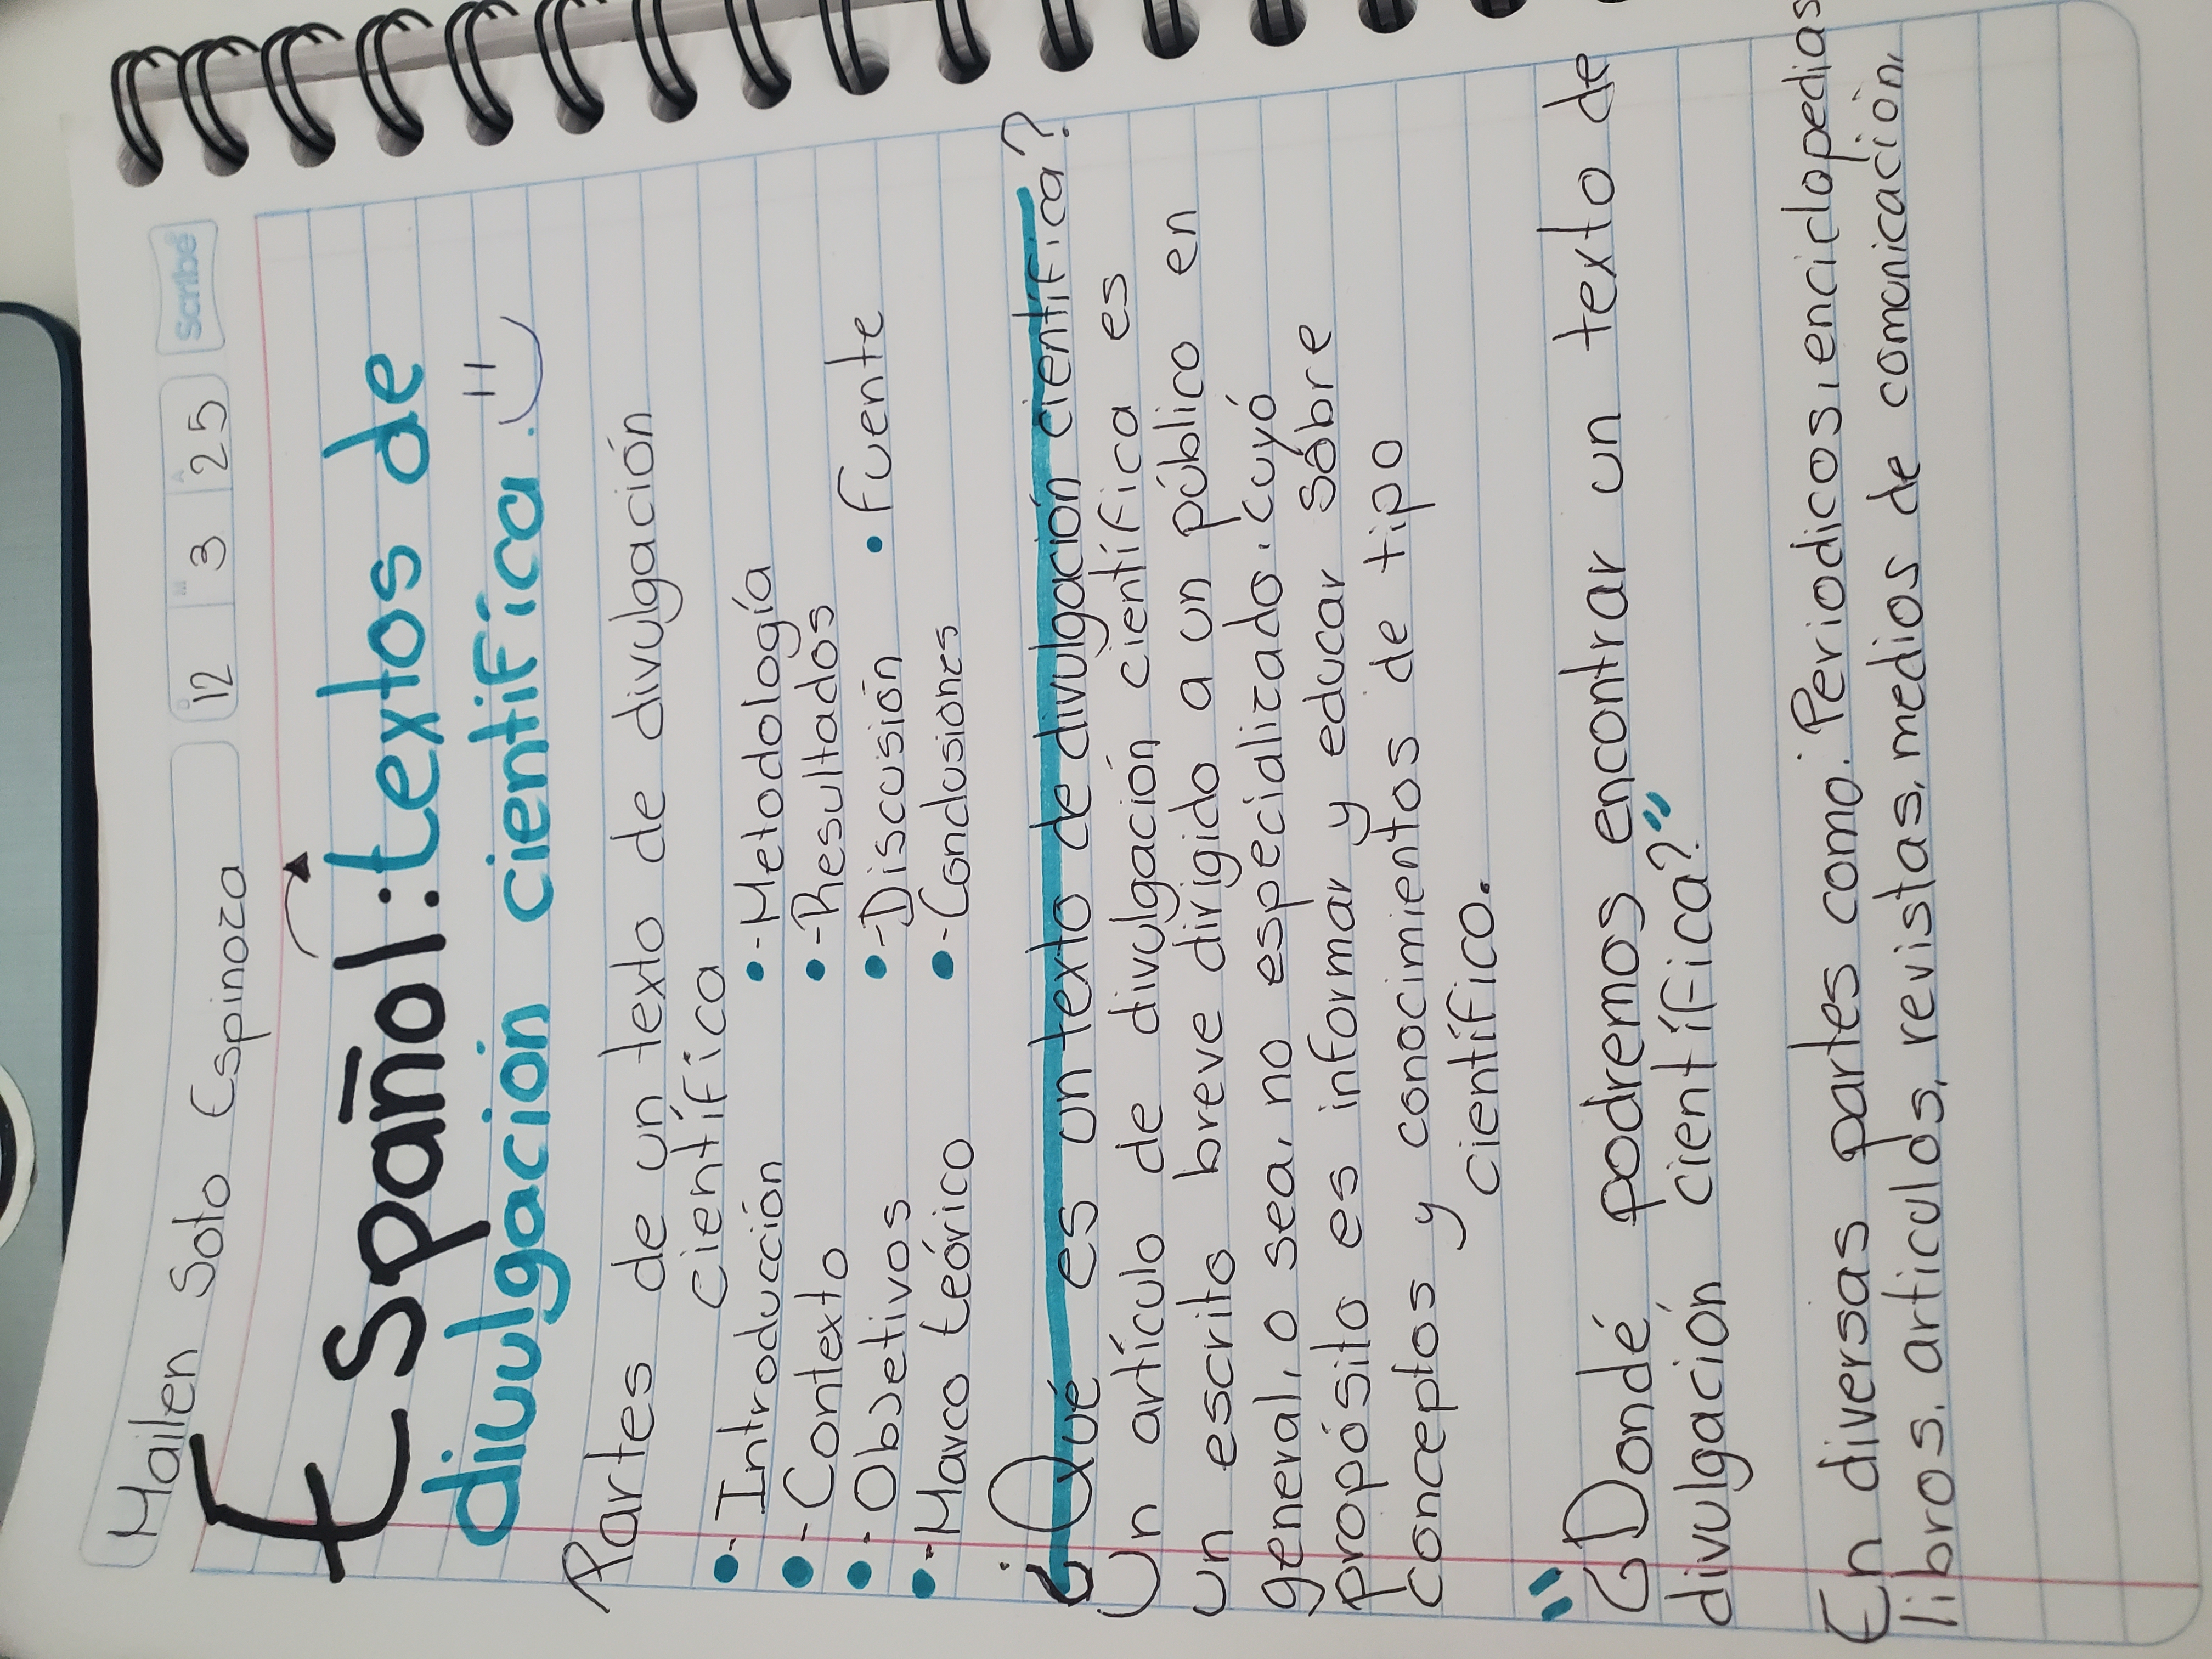 Mailen Soto Espinoza
D M A
12 3 25
Scribe
Español: textos de
divulgación científica.
Partes de un texto de divulgación
científica
•- Introducción
•- Contexto
•- Objetivos
•- Marco teórico
•- Metodología
•- Resultados
•- Discusión
•- Conclusiones
• Fuente
¿Qué es un texto de divulgación científica?
Un artículo de divulgación científica es
un escrito breve dirigido a un público en
general, o sea, no especializado. cuyó
propósito es informar y educar sóbre
conceptos y conocimientos de tipo
científico.
"¿Dondé podremos encontrar un texto de
divulgación científica?"
En diversas partes como: Periodicos, enciclopedias
libros, articulos, revistas, medios de comunicación,